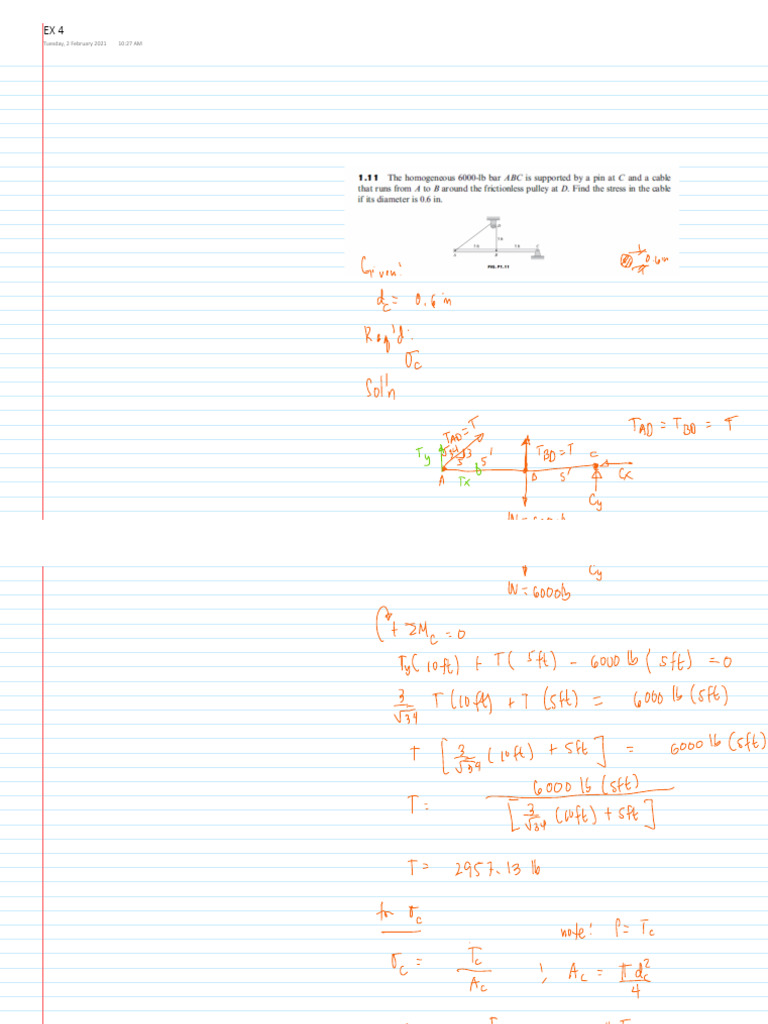 EX 4
Tuesday, 2 February 2021 10:27 AM
1.11 The homogeneous 6000-lb bar ABC is supported by a pin at C and a cable
that runs from A to B around the frictionless pulley at D. Find the stress in the cable
if its diameter is 0.6 in.
FIG. P1.11
0.6 in
Given:
dc = 0.6 in
Req'd:
σc
Sol'n
TAD = TBD = T
TAD = T
Ty
√34
3
5
5'
TBD = T
C
A
Tx
B
5'
Cx
Cy
Cy
W = 6000lb
+ ΣMc = 0
Ty(10ft) + T(5ft) - 6000 lb (5ft) = 0
3/√34 T(10ft) + T(5ft) = 6000 lb (5ft)
T [3/√34 (10ft) + 5ft] = 6000 lb (5ft)
T = 6000 lb (5ft) / [3/√34 (10ft) + 5ft]
T = 2957.13 lb
for σc
note: P = Tc
σc = Tc/Ac ; Ac = πdc²/4